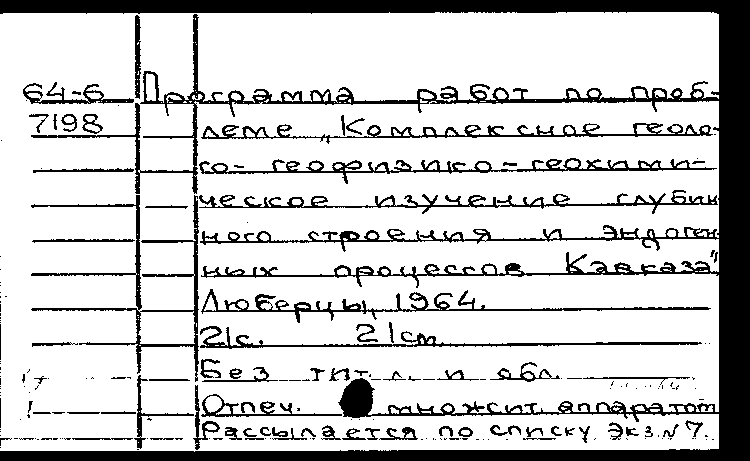 64-6 Программа работ по проб-
7198 леме „Комплексное геоло-
го-геофизико-геохими-
ческое изучение глубин
ного строения и эндоген
ных процессов Кавказа"
Люберцы, 1964.
21с. 21см.
Без тит. л. и обл.
Отпеч. множит. аппаратом
Рассылается по списку Экз N 7.